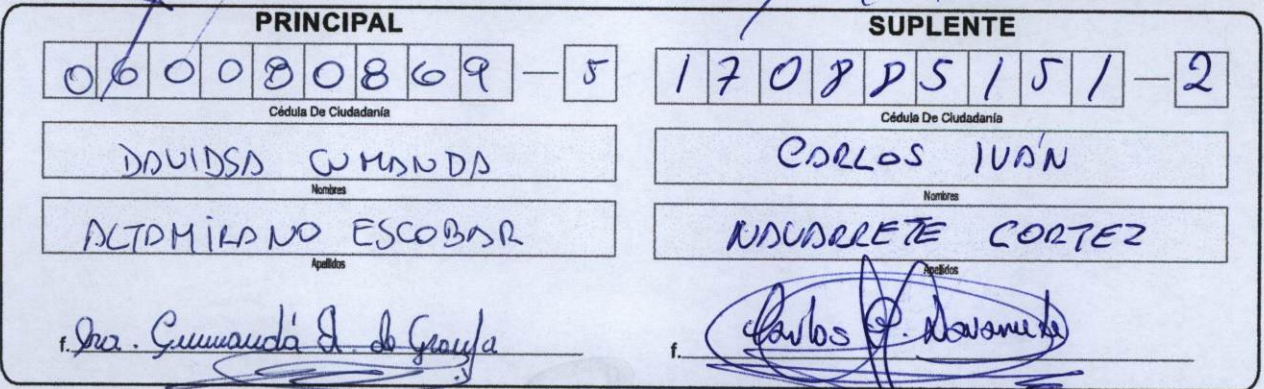 PRINCIPAL
060080869 - 5
Cédula De Ciudadanía
DAVIDSA CUMANDA
Nombres
ALTAMIRANO ESCOBAR
Apellidos
f. Dra. Cumandá A. de Granja
SUPLENTE
170885151 - 2
Cédula De Ciudadanía
CARLOS IVÁN
Nombres
NAVARRETE CORTEZ
Apellidos
f. Carlos Navarrete